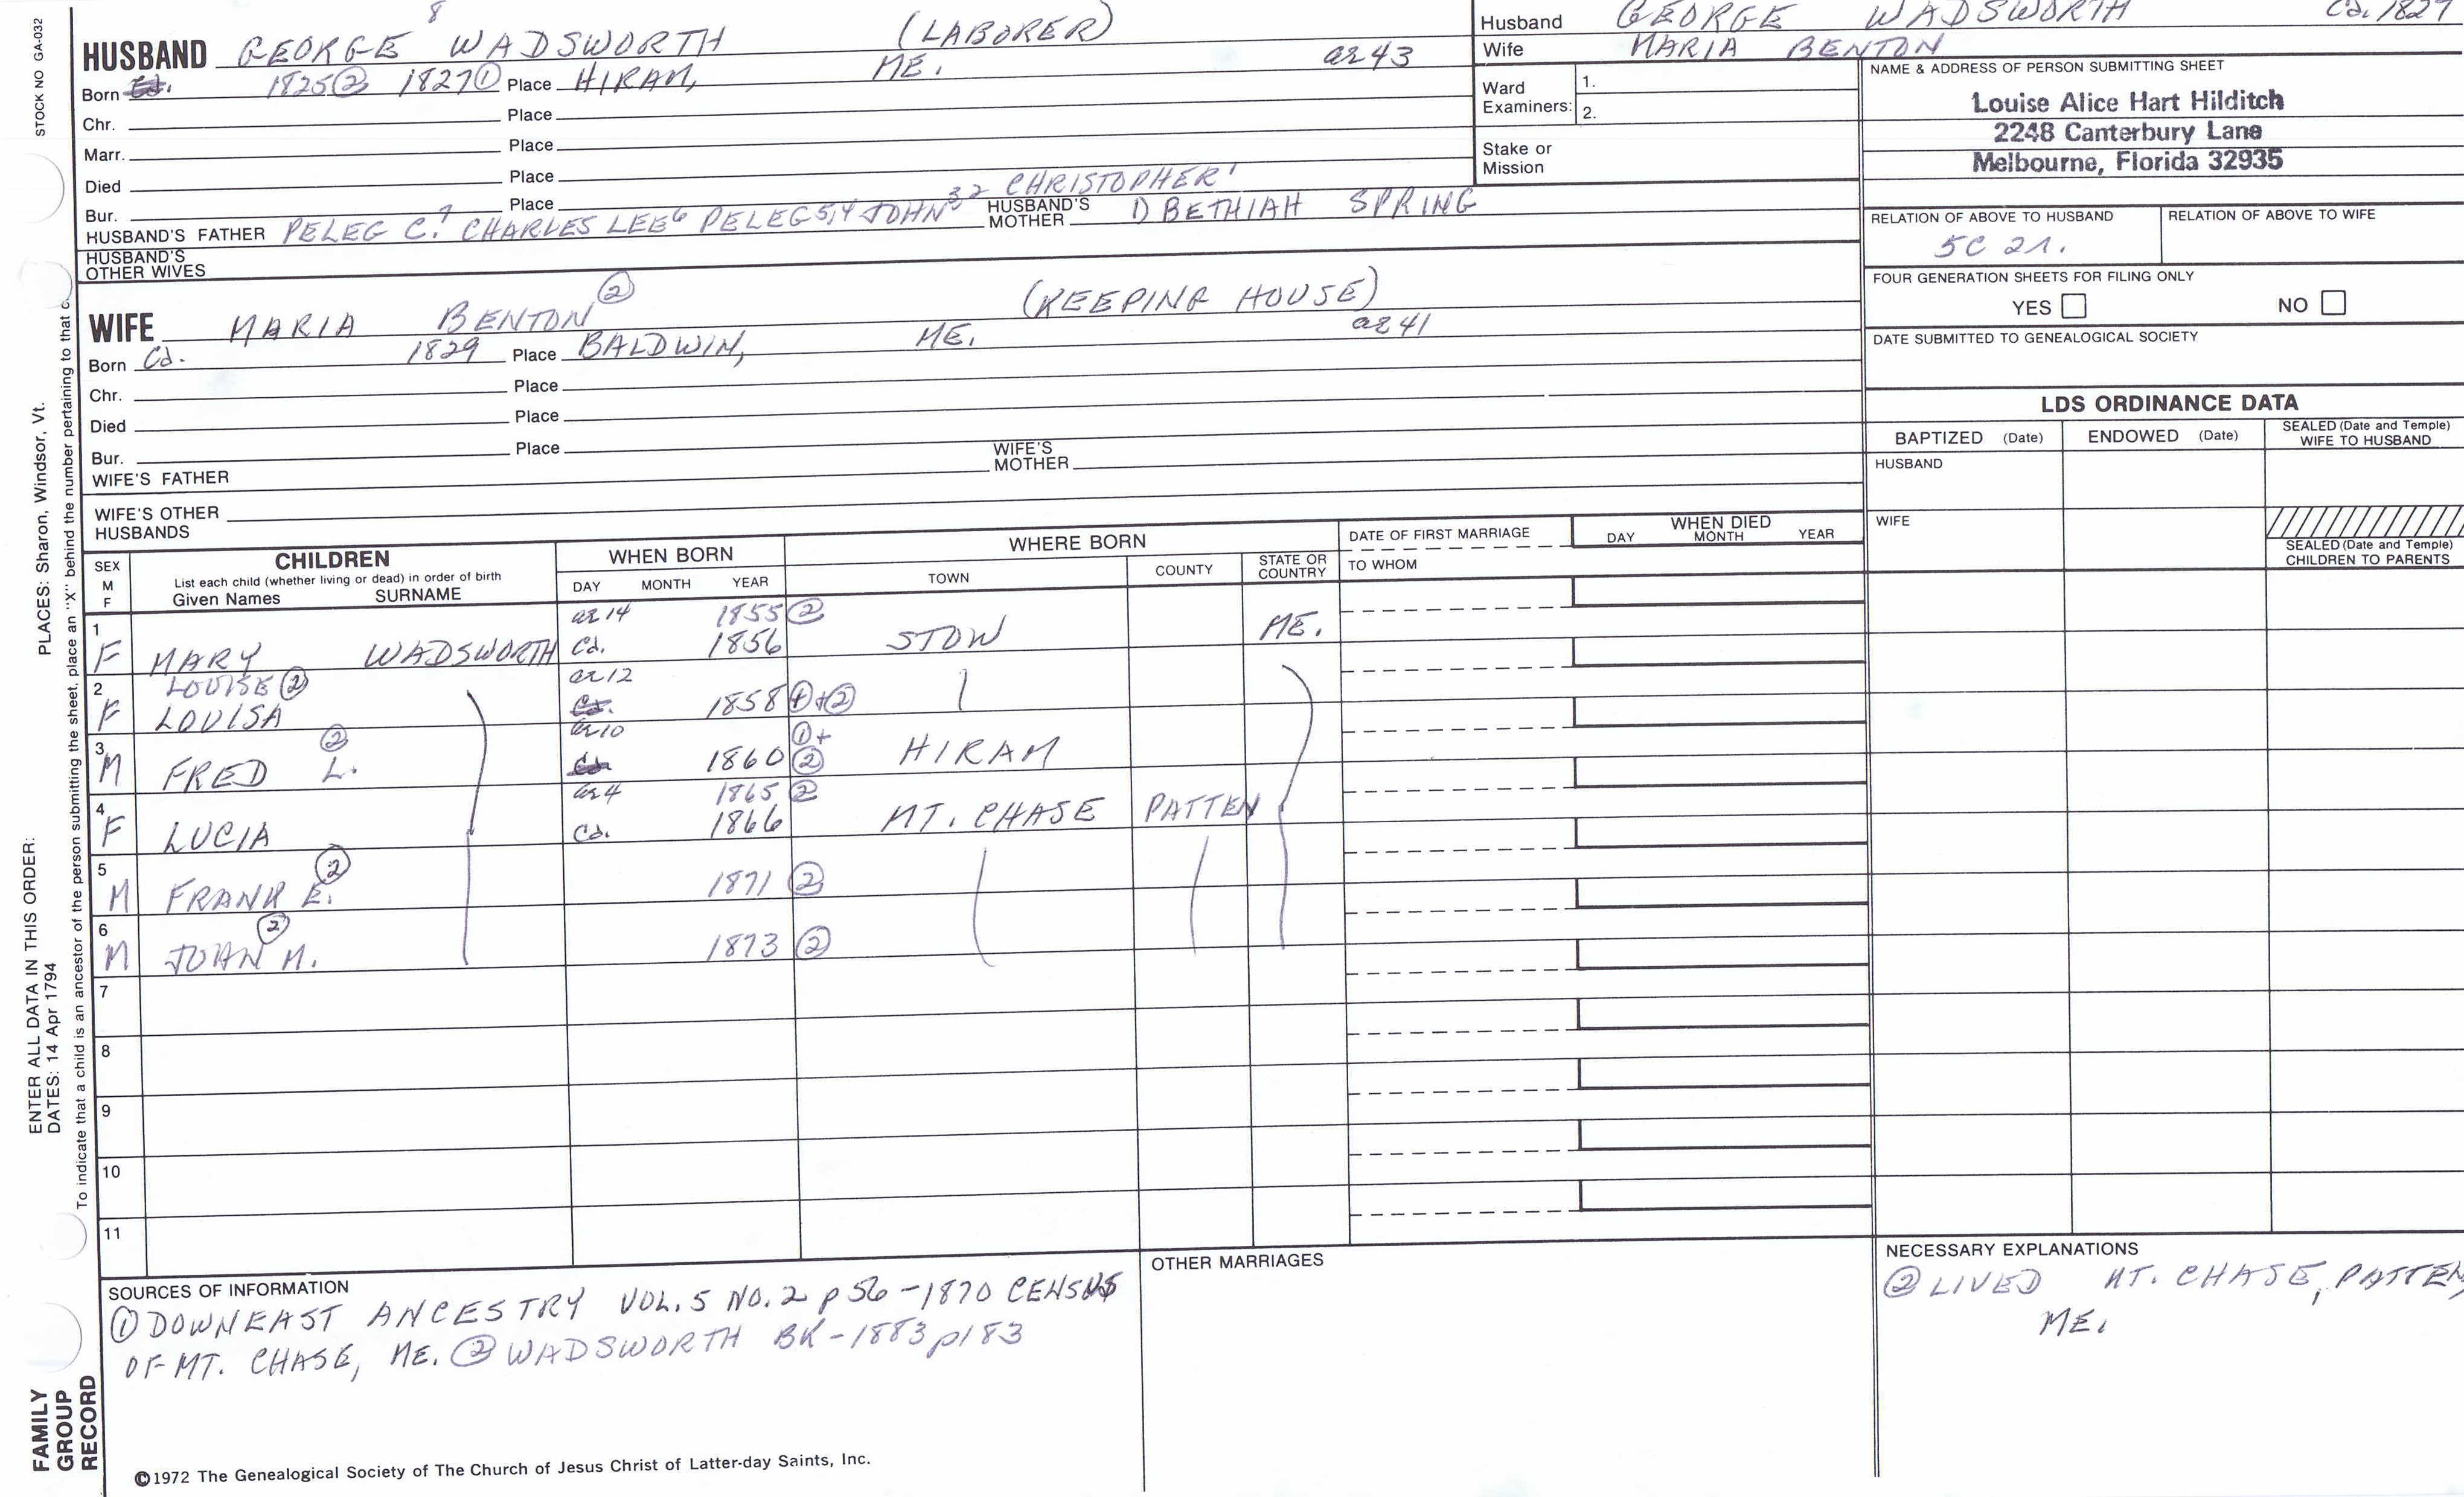 STOCK NO GA-032
8
HUSBAND GEORGE WADSWORTH (LABORER)
Born 1825② 1827① Place HIRAM, ME. ae 43
Chr. Place
Marr. Place
Died Place
Bur. Place
HUSBAND'S FATHER PELEG C.7 CHARLES LEE6 PELEG5,4 JOHN32 CHRISTOPHER1 HUSBAND'S MOTHER 1) BETHIAH SPRING
HUSBAND'S OTHER WIVES
WIFE MARIA BENTON② (KEEPING HOUSE)
Born Cd. 1829 Place BALDWIN, ME. ae 41
Chr. Place
Died Place
Bur. Place
WIFE'S FATHER WIFE'S MOTHER
WIFE'S OTHER HUSBANDS
Husband GEORGE WADSWORTH Cd. 1827
Wife MARIA BENTON
Ward Examiners: 1.
2.
Stake or Mission
NAME & ADDRESS OF PERSON SUBMITTING SHEET
Louise Alice Hart Hilditch
2248 Canterbury Lane
Melbourne, Florida 32935
RELATION OF ABOVE TO HUSBAND RELATION OF ABOVE TO WIFE
5C 2r.
FOUR GENERATION SHEETS FOR FILING ONLY
YES NO
DATE SUBMITTED TO GENEALOGICAL SOCIETY
LDS ORDINANCE DATA
BAPTIZED (Date) ENDOWED (Date) SEALED (Date and Temple) WIFE TO HUSBAND
HUSBAND
WIFE
SEALED (Date and Temple) CHILDREN TO PARENTS
SEX M F
CHILDREN
List each child (whether living or dead) in order of birth
Given Names SURNAME
WHEN BORN
DAY MONTH YEAR
WHERE BORN
TOWN COUNTY STATE OR COUNTRY
DATE OF FIRST MARRIAGE
TO WHOM
WHEN DIED
DAY MONTH YEAR
ae 14 1855②
1 F MARY WADSWORTH Cd. 1856 STOW ME.
LOUISE② ae 12
2 F LOUISA 1858①+②
② ae 10 ①+
3 M FRED L. 1860② HIRAM
ae 4 1865②
4 F LUCIA Cd. 1866 MT. CHASE PATTEN
5 M FRANK E.② 1871②
6 M JOHN M.② 1873②
7
8
9
10
11
SOURCES OF INFORMATION
① DOWNEAST ANCESTRY VOL. 5 NO. 2 p 56 - 1870 CENSUS
OF MT. CHASE, ME. ② WADSWORTH BK - 1883 p183
OTHER MARRIAGES
NECESSARY EXPLANATIONS
② LIVED MT. CHASE, PATTEN
ME.
©1972 The Genealogical Society of The Church of Jesus Christ of Latter-day Saints, Inc.
ENTER ALL DATA IN THIS ORDER:
DATES: 14 Apr 1794 PLACES: Sharon, Windsor, Vt.
To indicate that a child is an ancestor of the person submitting the sheet, place an "X" behind the number pertaining to that
FAMILY GROUP RECORD